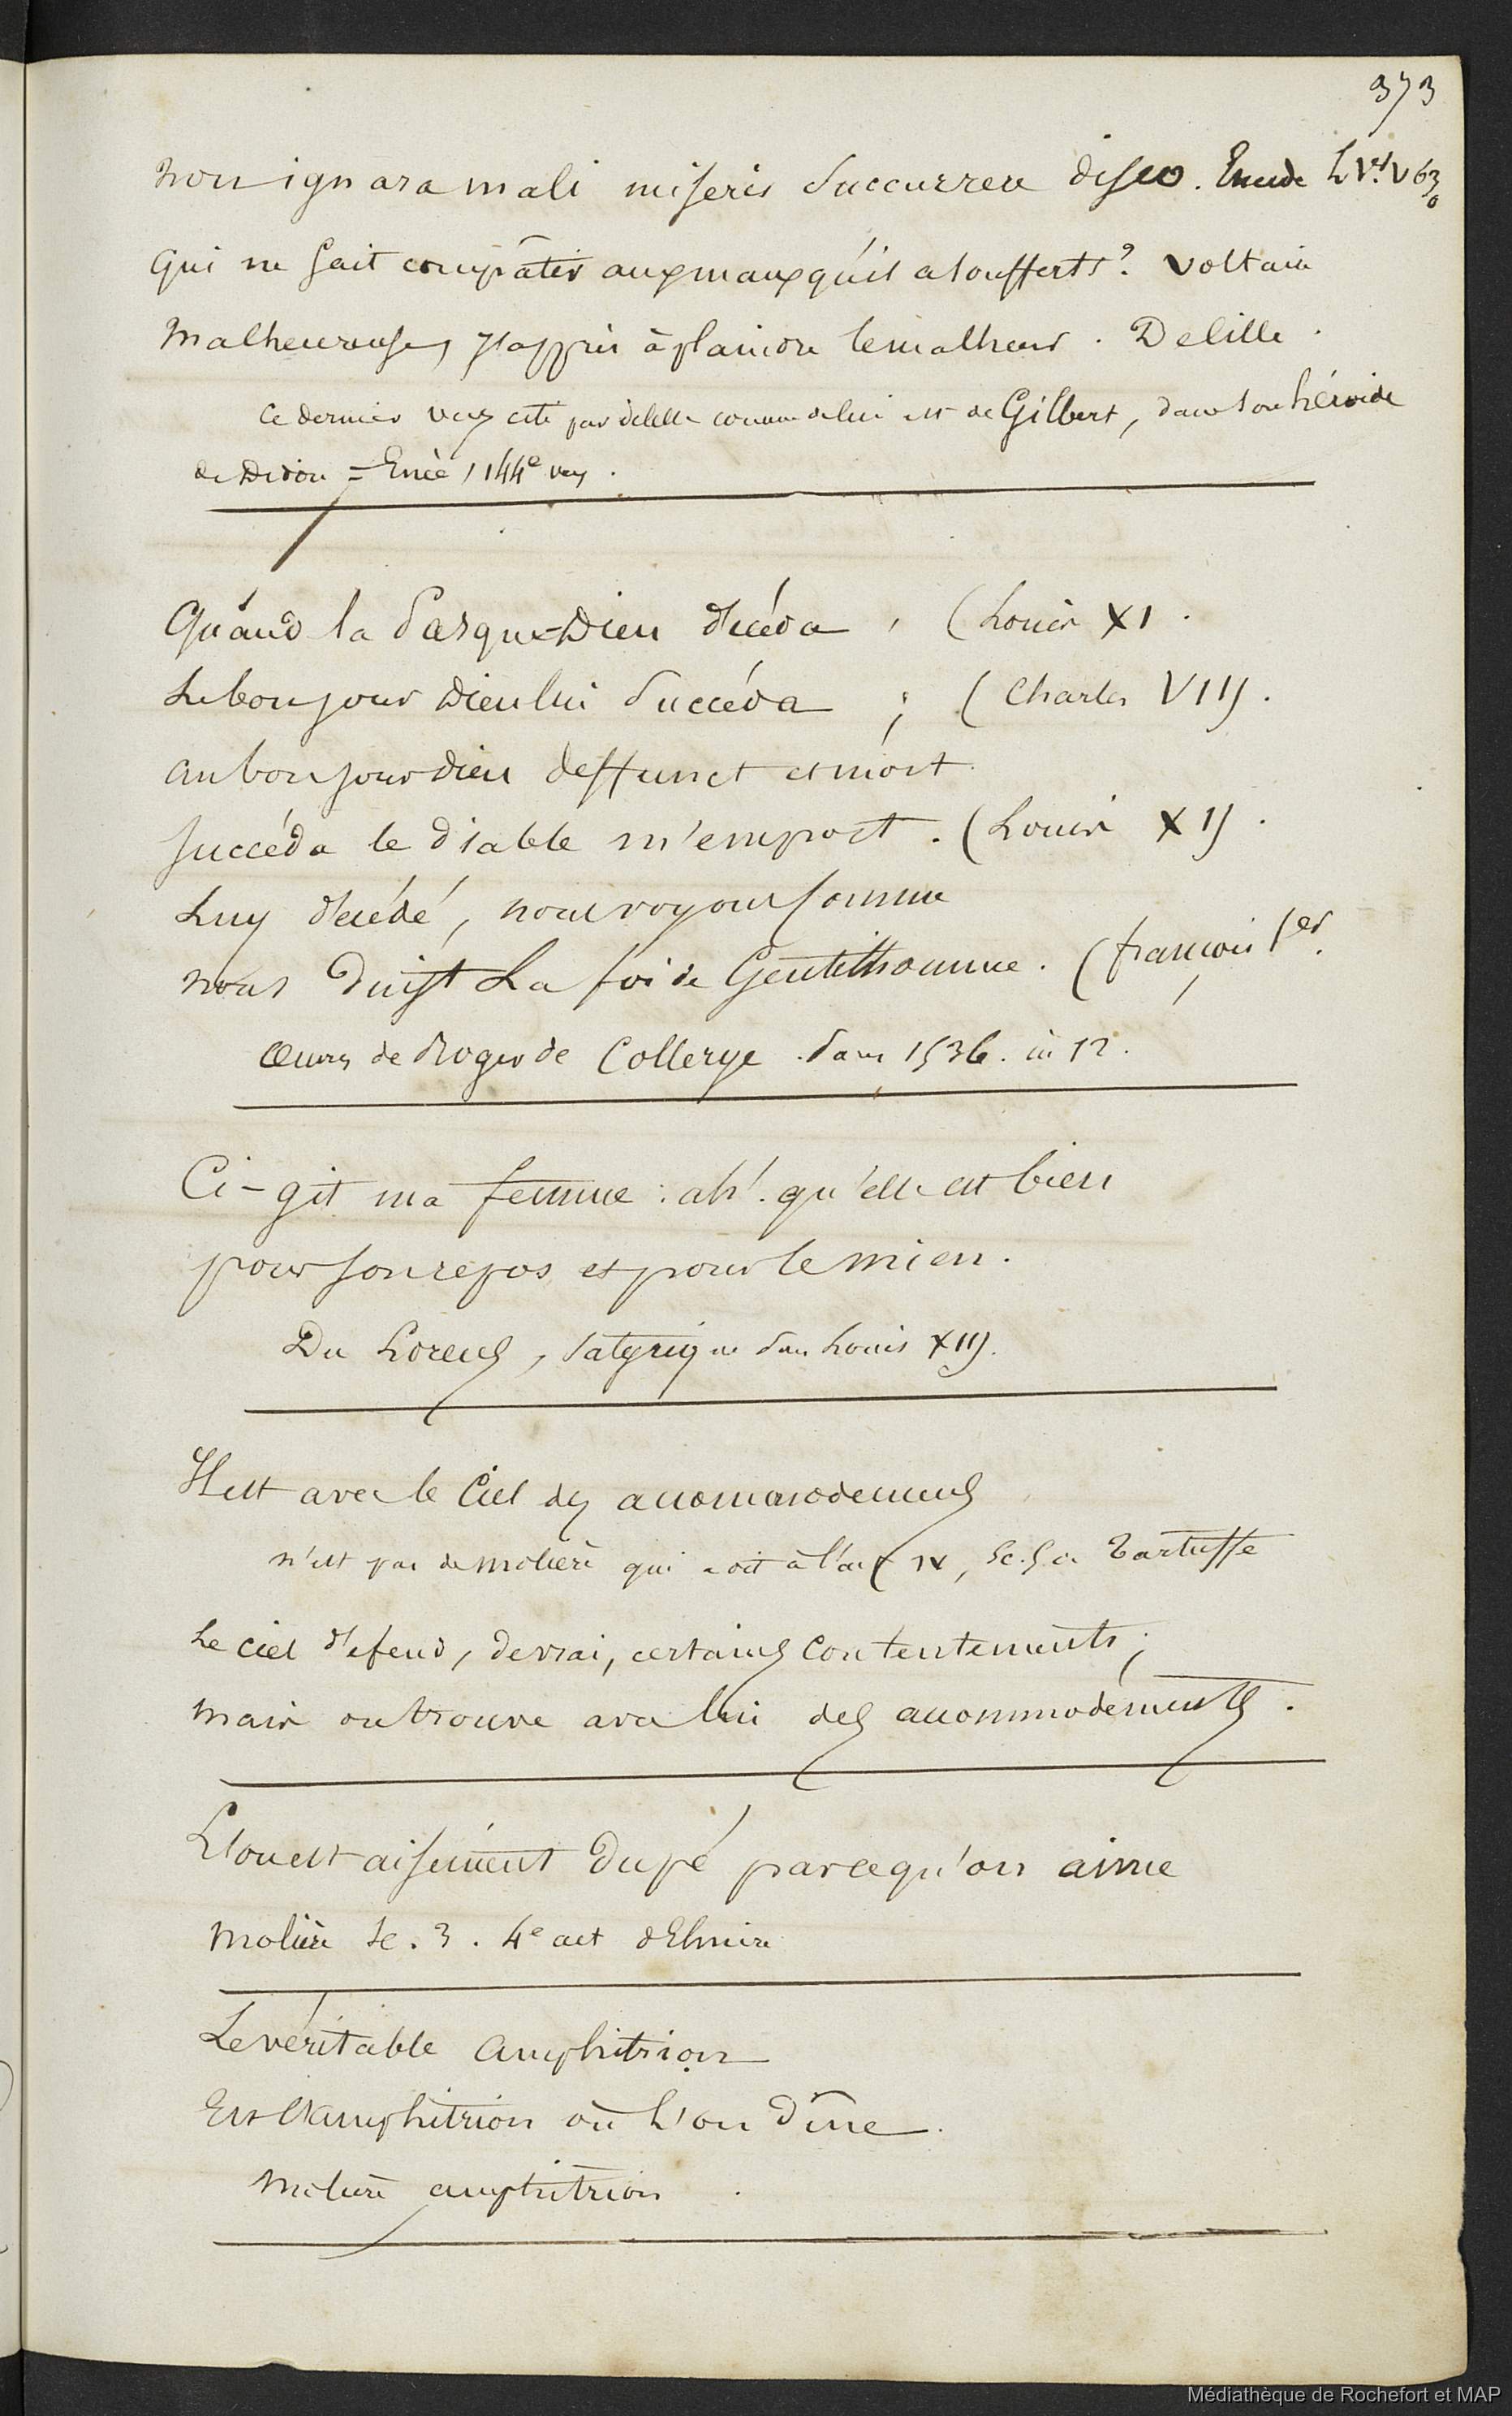 373
non ignara mali miseris succurrere disco. Eneide L Ver. V 630
qui ne sait compâtir aux maux qu'il a soufferts? Voltaire
Malheureuse, j'appris à plaindre le malheur. Delille.
Ce dernier vers cité par delille comme de lui est de Gilbert, dans son héroide
de Didon = Enée, 144e vers.
Quand la Pasque-Dieu décéda, (Louis XI.
Le bon jour Dieu lui succéda; (Charles VIII.
au bon jour dieu deffunct et mort
succéda le diable m'emport. (Louis XII.
Luy décédé, nous voyons comme
nous duist La foi de Gentilhomme. (françois 1er.
Œuvres de Roger de Collerye. Paris 1536. in 12.
Ci-git ma femme: ah! qu'elle est bien
pour son repos et pour le mien.
Du Lorens, satyrique sous Louis XIII.
Il est avec le Ciel des accomodemens
n'est pas de molière qui a dit à l'act IV, Sc. 5 du Tartuffe
Le ciel défend, de vrai, certains contentements;
mais on trouve avec lui des accommodements.
L'on est aisément dupé par ce qu'on aime
Molière Sc. 3. 4e act d'Elmire
Le véritable Amphitrion
Est l'Amphitrion où l'on dîne.
Molière amphitrion.
Médiathèque de Rochefort et MAP